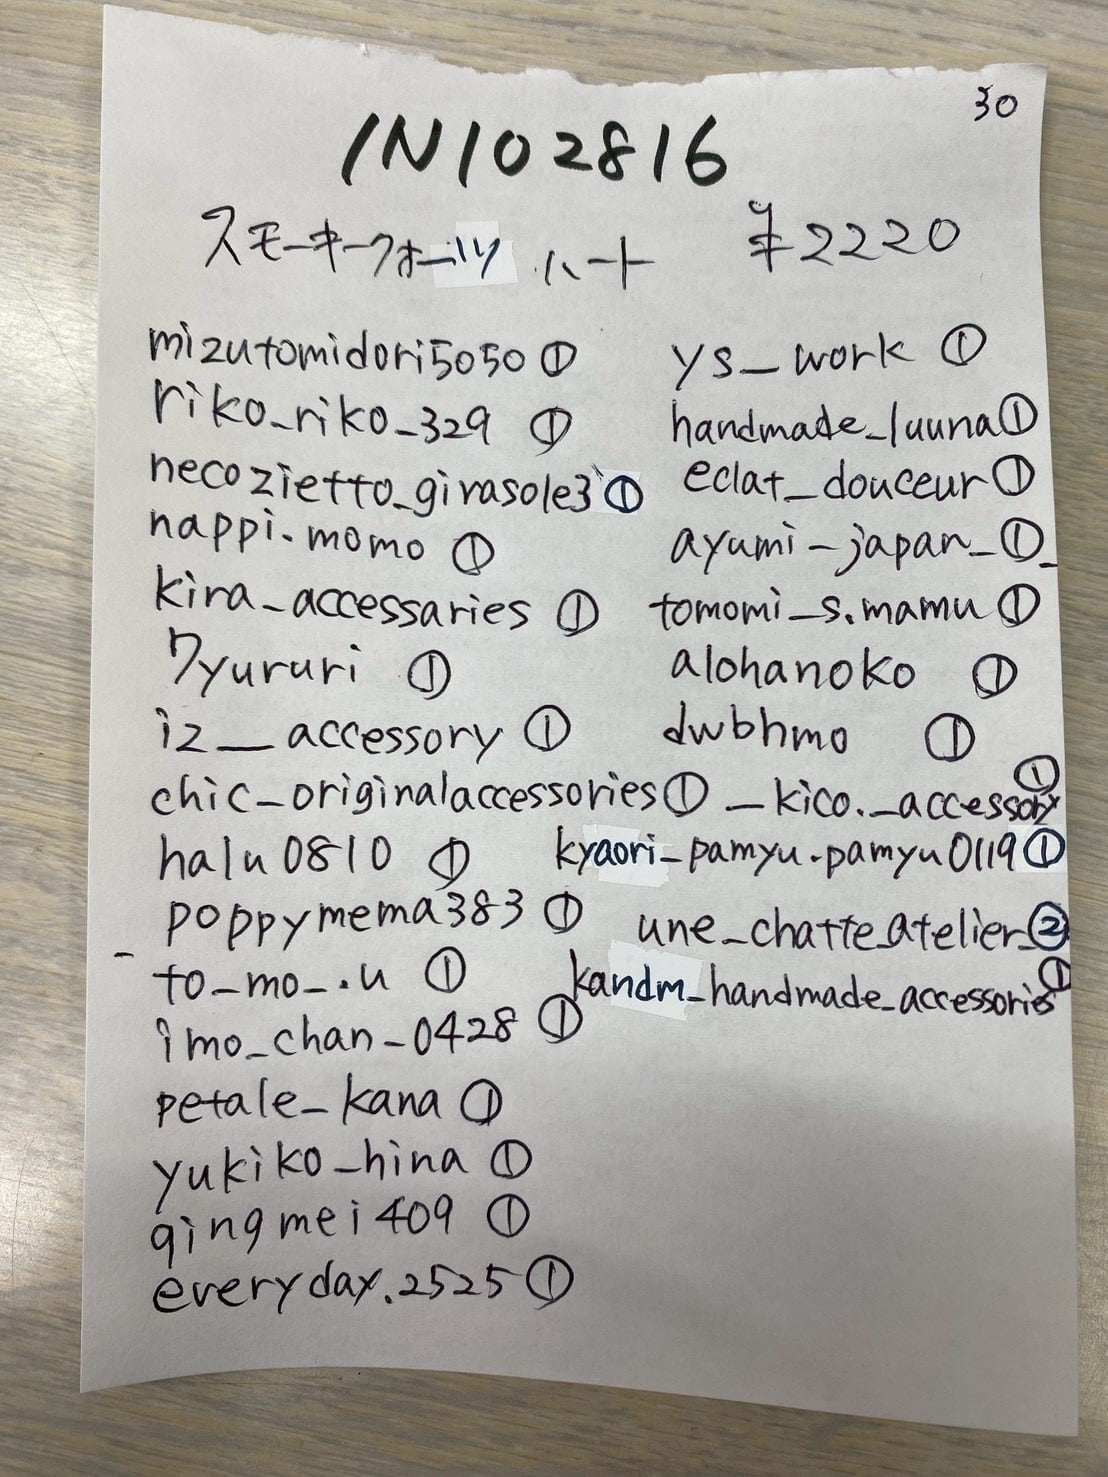 30
IN102816
スモーキークォーツ ハート ¥2220
mizutomidori5050 ①
riko_riko_329 ①
necozietto_girasole3 ①
nappi.momo ①
kira_accessaries ①
7yururi ①
iz__accessory ①
chic_originalaccessories ①
halu0810 ①
poppymema383 ①
to_mo_.u ①
imo_chan_0428 ①
petale_kana ①
yukiko_hina ①
qingmei409 ①
everyday.2525 ①
ys_work ①
handmade_luuna ①
eclat_douceur ①
ayumi_japan_ ①
tomomi_s.mamu ①
alohanoko ①
dwbhmo ①
_kico._accessory ①
kyaori_pamyu.pamyu0119 ①
une_chatte_atelier_ ②
kandm_handmade_accessories ①